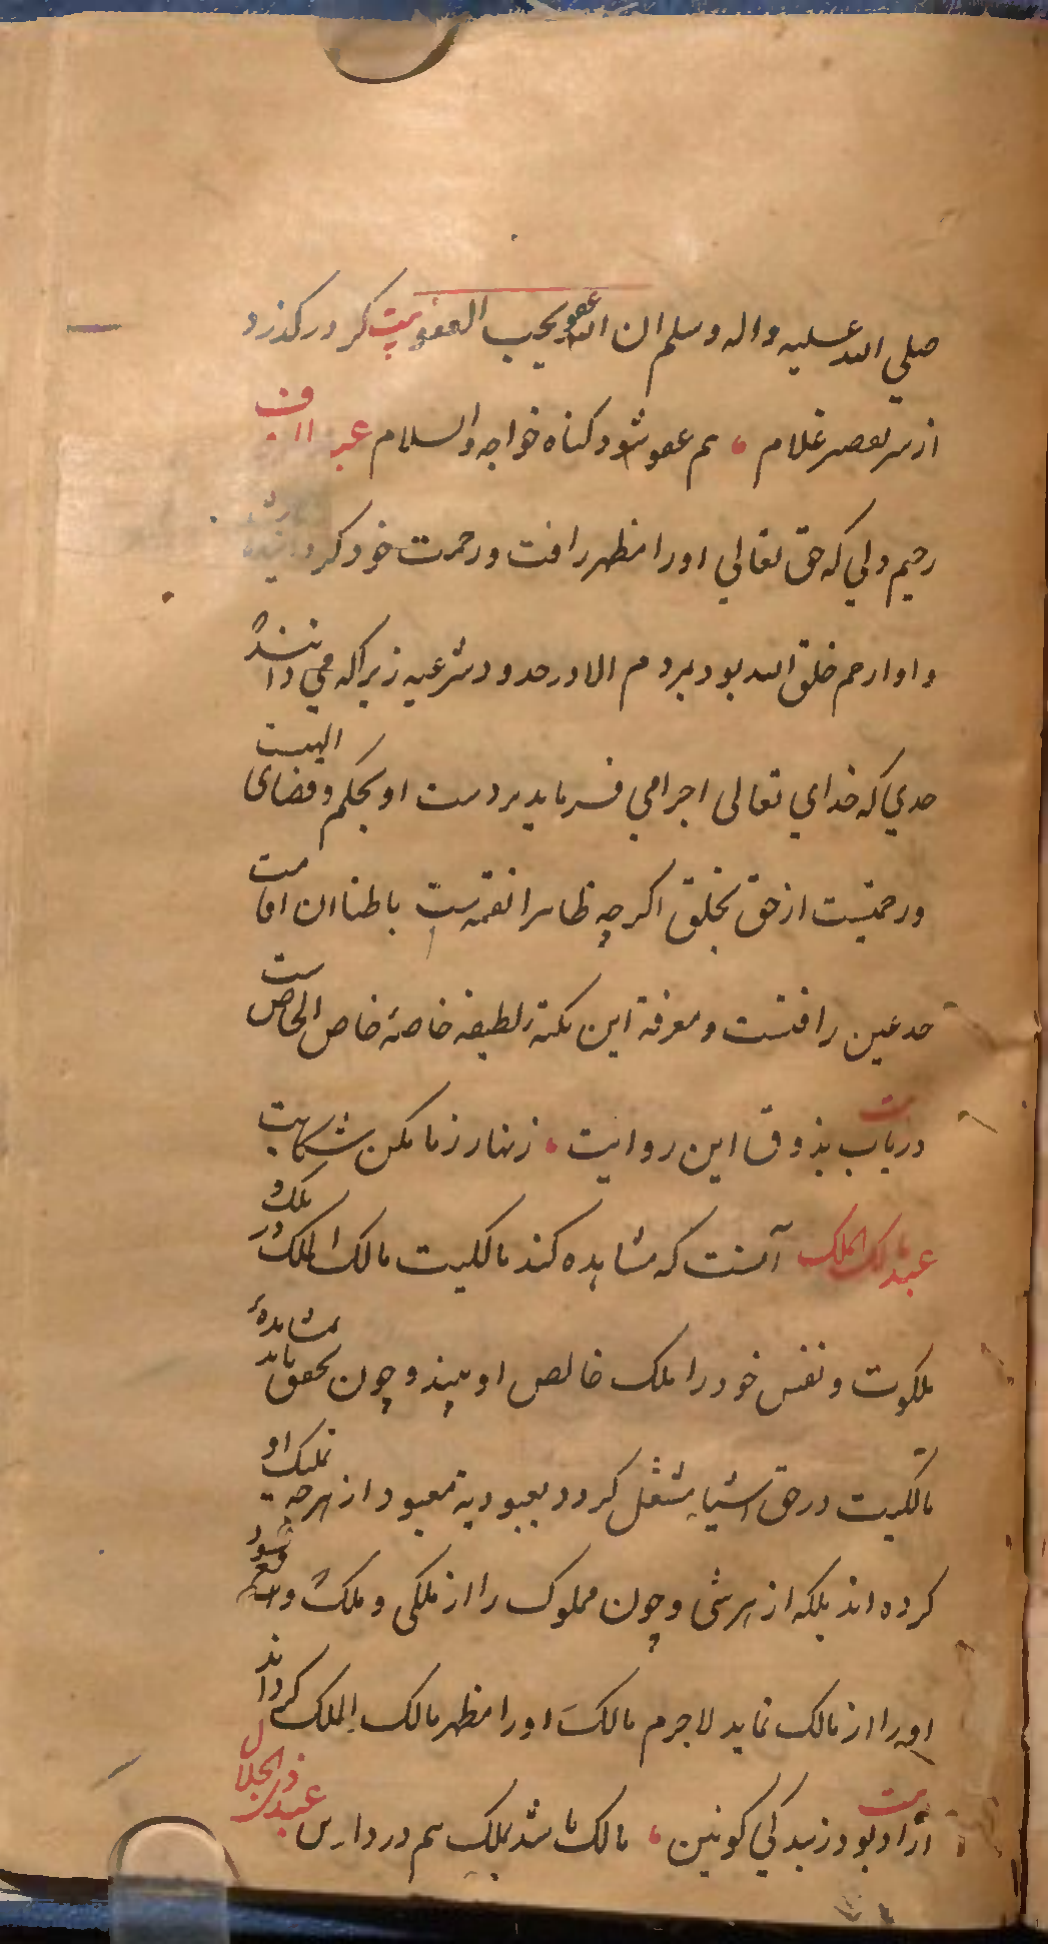 صلي الله عليه واله وسلم ان الله عفو يحب العفو بيت كر دركذرد
از سر تقصير غلام هم عفو شود كناه خواجه والسلام
رحيم دلي كه حق تعالي اورا مظهر رافت ورحمت خود كردانيده
و او ارحم خلق الله بود بمردم الا در حدود شرعيه زيراكه مي دانند
حدي كه خداي تعالى اجرا مي فرمايد بر دست او بحكم وقضاى الهيست
ورحمتيست از حق بخلق اكرچه ظاهرا نقمتست باطنا ان اقامت
حد عين رافتست ومعرفة اين نكته لطيفه خاصهٔ خاص الخاص ست
بيت درياب بذوق اين روايت زنهار ز ما مكن شكايت
عبد مالك الملك آنست كه مشاهده كند مالكيت مالك الملك در ملك و
ملكوت ونفس خود را ملك خالص او بيند و چون بحقق يابد بمشاهدهٔ
مالكيت در حق اشيا مشتغل كردد بعبودية معبود از هرچه تمليك او
كرده اند بلكه از هرشى وچون مملوك را از ملكى وملك
اورا از مالك نمايد لاجرم مالك اورا مظهر مالك الملك كرداند
بيت آزاد بود ز بندكي كونين مالك باشد بملك هم در دارين عبد ذي الجلال